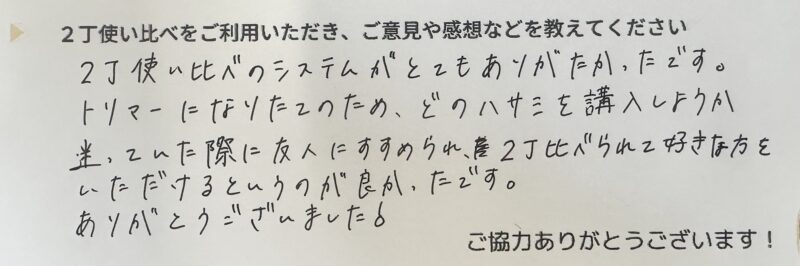 2丁使い比べをご利用いただき、ご意見や感想などを教えてください
2丁使い比べのシステムがとてもありがたかったです。
トリマーになりたてのため、どのハサミを講入しようか
迷っていた際に友人にすすめられ、2丁比べられて好きな方を
いただけるというのが良かったです。
ありがとうございました
ご協力ありがとうございます！